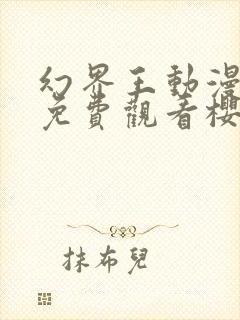 幻界王動漫
免費觀看櫻
抹布兒